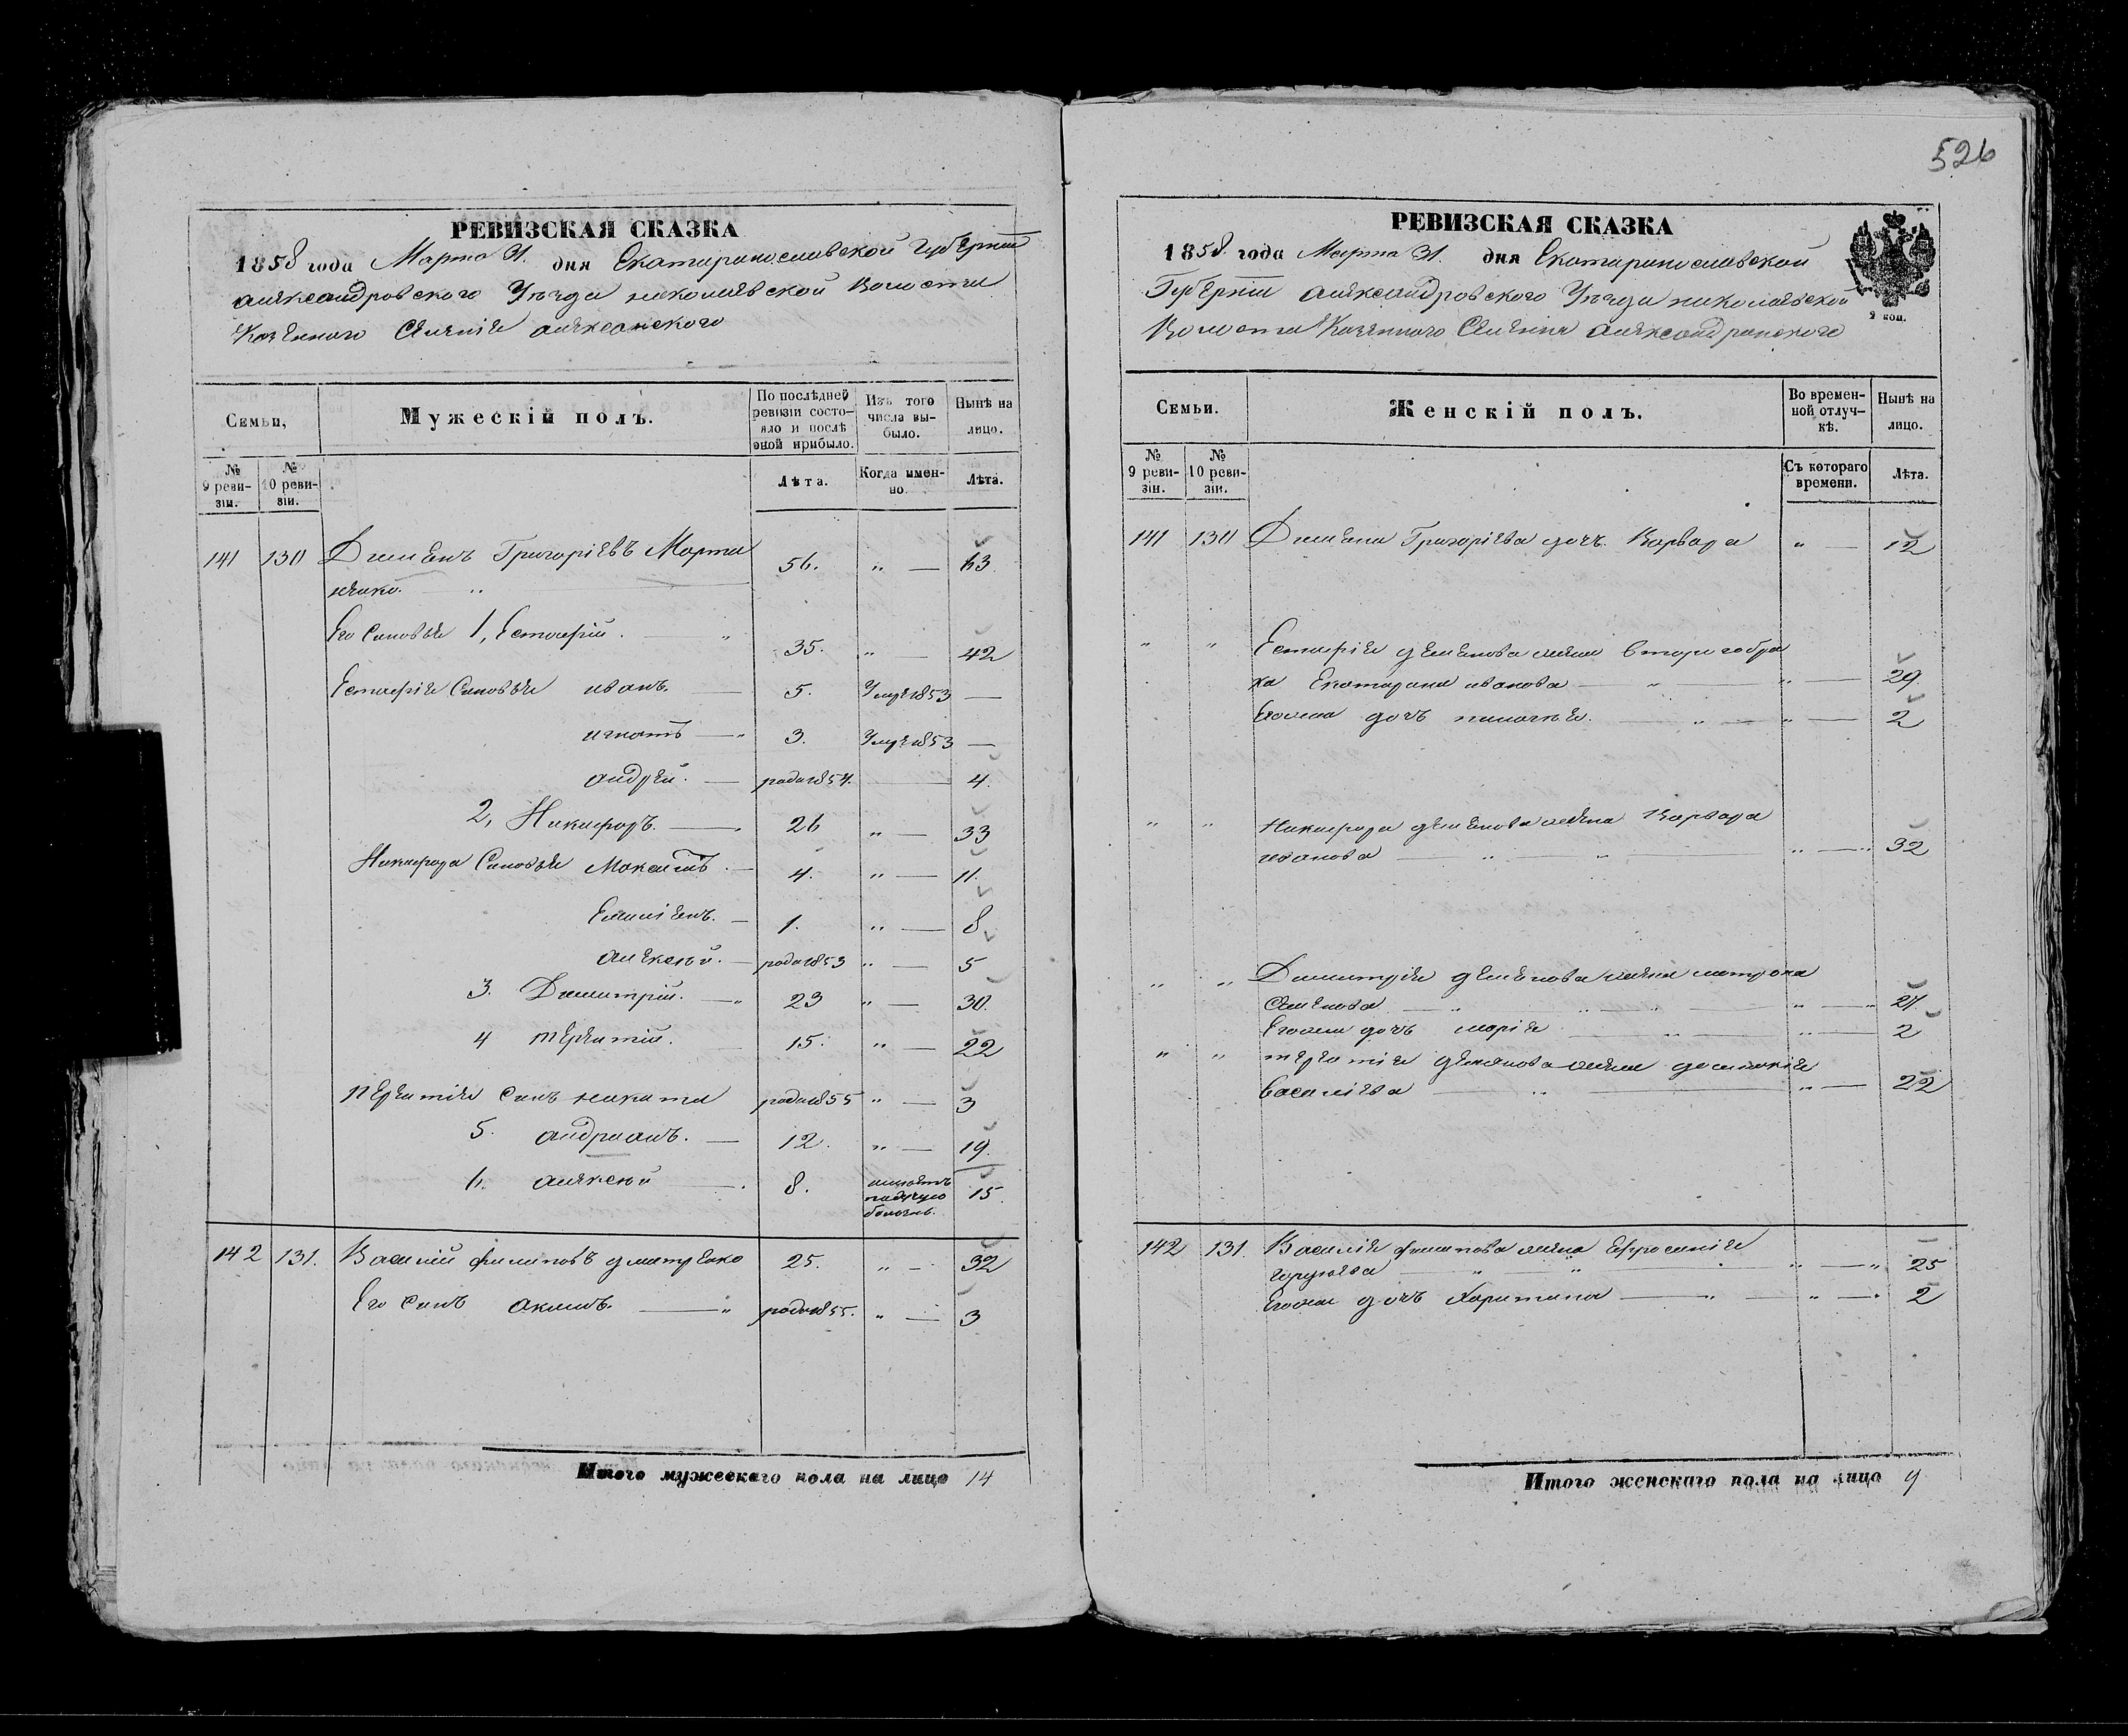 526
РЕВИЗСКАЯ СКАЗКА
1858 года Марта 31. дня Екатеринославской Губернии
александровского Уезда николаевской волости
Казенного Селения
Семьи,
Мужескій полъ.
По послѣдней ревизіи состо-
яло и послѣ оной прибыло.
Изъ того числа вы-
было.
Нынѣ на лицо.
№ 9 реви-
зіи.
№ 10 реви-
зіи.
Лѣта.
Когда имен-
но.
Лѣта.
141 130 Демьенъ Григоріевъ Марти 56. " — 63
ненко. — "
Его Сыновья 1, Естафій. — " 35. " — 42
Естафія Сыновья иванъ. — 5. Умре 1853 —
игнатъ — " 3. Умре 1853 —
андрей. — рода 1854. — 4.
2, Никифоръ. — 26 " — 33
Никифора Сыновья Максимъ. — 4. " — 11.
Емилiенъ. — 1. " — 8
алексей. — рода 1853 " — 5
3. Димитрій. — " 23 " — 30.
4 терентій. 15. " — 22
терентія Сынъ никита рода 1855 " — 3
5. андрианъ. — 12. " — 19.
6. алексей — 8. имеетъ падучую болезнь. 15.
142 131. Василий филиповъ дмитренко 25. " — 32
Его Сынъ акимъ. — " рода 1855. " — 3
Итого мужескаго пола на лицо 14
РЕВИЗСКАЯ СКАЗКА
1858 года Марта 31. дня Екатеринославской
Губернии александровского Уезда николаевской
Волости Казенного Селения
2 коп.
Семьи.
Женскій полъ.
Во времен-
ной отлуч-
кѣ.
Нынѣ на лицо.
№ 9 реви-
зіи.
№ 10 реви-
зіи.
Съ котораго времени.
Лѣта.
141 130 Демьена Григоріева дочь Варвара " — 12
" " Естафія деменова жена втораго бра
ка Екатерина иванова — " — " — 29
Егоже дочь — " — " — 2
" " Никифора деменова жена Варвара
иванова — " — " — " — " 32
" " Димитрія деменова жена матрона
Семенова — " — " 27.
Егоже дочь марія — " — 2
" " терентія деменова жена
Василіева — " — " — 22
142 131. Василія филипова жена Ефросинія
— " — " — " — " 25
Егоже дочь Харитина — " — " — " 2
Итого женскаго пола на лицо 9